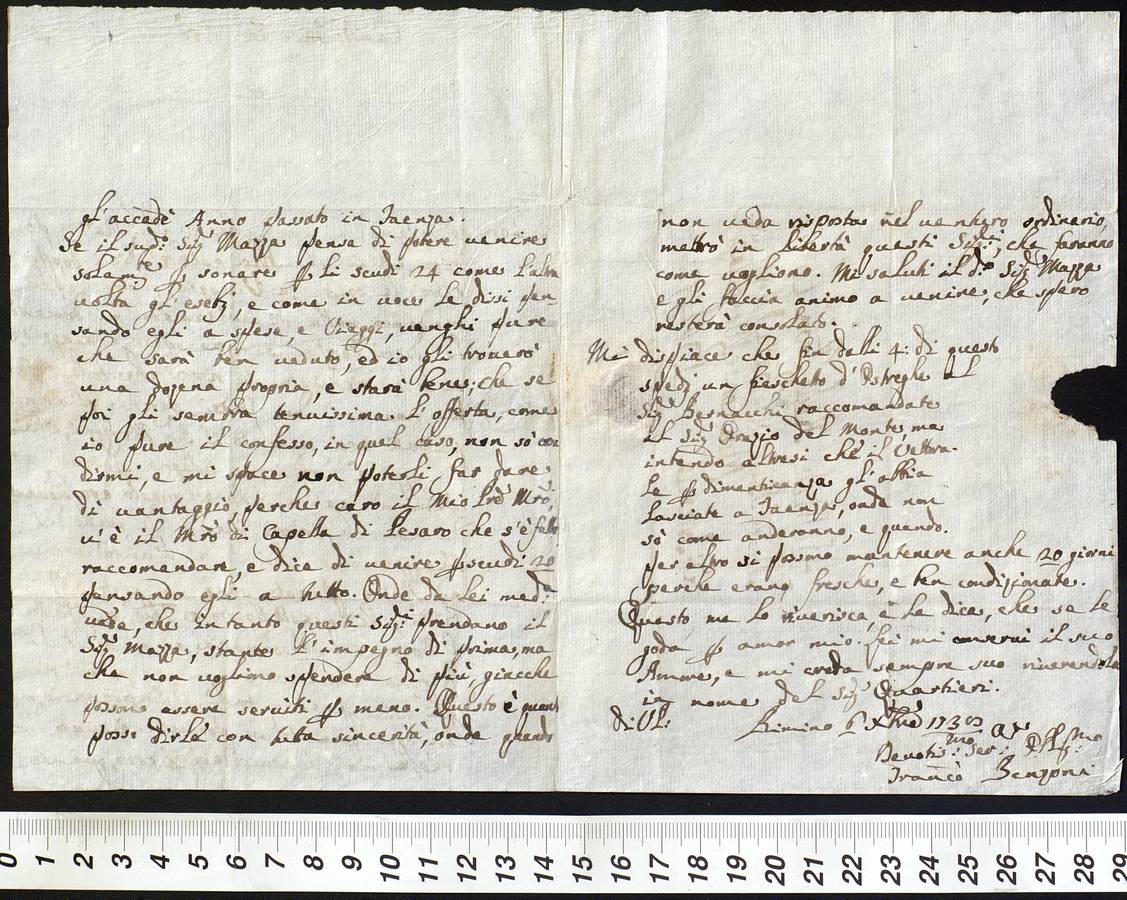 gl'accadè Anno passato in Faenza.
Se il sud.º Sig.r Mazza pensa di potere venire
solam.te p sonare p li scudi 24 come l'altra
volta gl'esebj, e come in voce le dissi pen
sando egli a spese, e Viaggi, venghi pure
che sarà ben veduto, ed io gli troverò
una dozena propria, e starà bene; che se
poi gli sembra tenuissima l'offerta, come
io pure il confesso, in quel caso, non sò con
dirmi, e mi spiace non poterli far dare
di vantaggio, perche caro il Mio Prè Mrò,
v'è il Mrò di Capella di Pesaro che s'è fatto
raccomandare, e dice di venire p scudi 20
pensando egli a tutto. Onde da lei med.º
vede, che intanto questi Sig.ri prendano il
Sig.r Mazza, stante l'impegno di prima, ma
che non vogliono spendere di più, giacche
possono essere serviti p meno. Questo è quant
posso dirle con tutta sincerità, onde quando
non veda risposta nel venturo ordinario,
metterò in libertà questi Sig.ri, che faranno
come vogliono. Mi saluti il d.º Sig.r Mazza
e gli faccia animo a venire, che spero
resterà consolato.
Mi dispiace che fin dalli 4: di questo
spedj un fieschetto d'Ostreghe al
Sig.r Bernacchi raccomandate
al Sig.r Orazio del Monte, ma
intendo altresi che il Vettura-
le p dimenticanza gl'abbia
lasciate a Faenza, onde non
sò come anderanno, e quando.
per altro si possono mantenere anche 20 giorni
perche erano fresche, e ben condizionate.
Questo me lo riverisca, e le dica, che se le
goda p amor mio. Lei mi conservi il suo
Amore, e mi creda sempre suo riverendola
in nome del Sig.r Quartieri.
di VP:
Rimino 6 Xbre 1730
Devotis.mo Ser.: 
Franco Benzoni